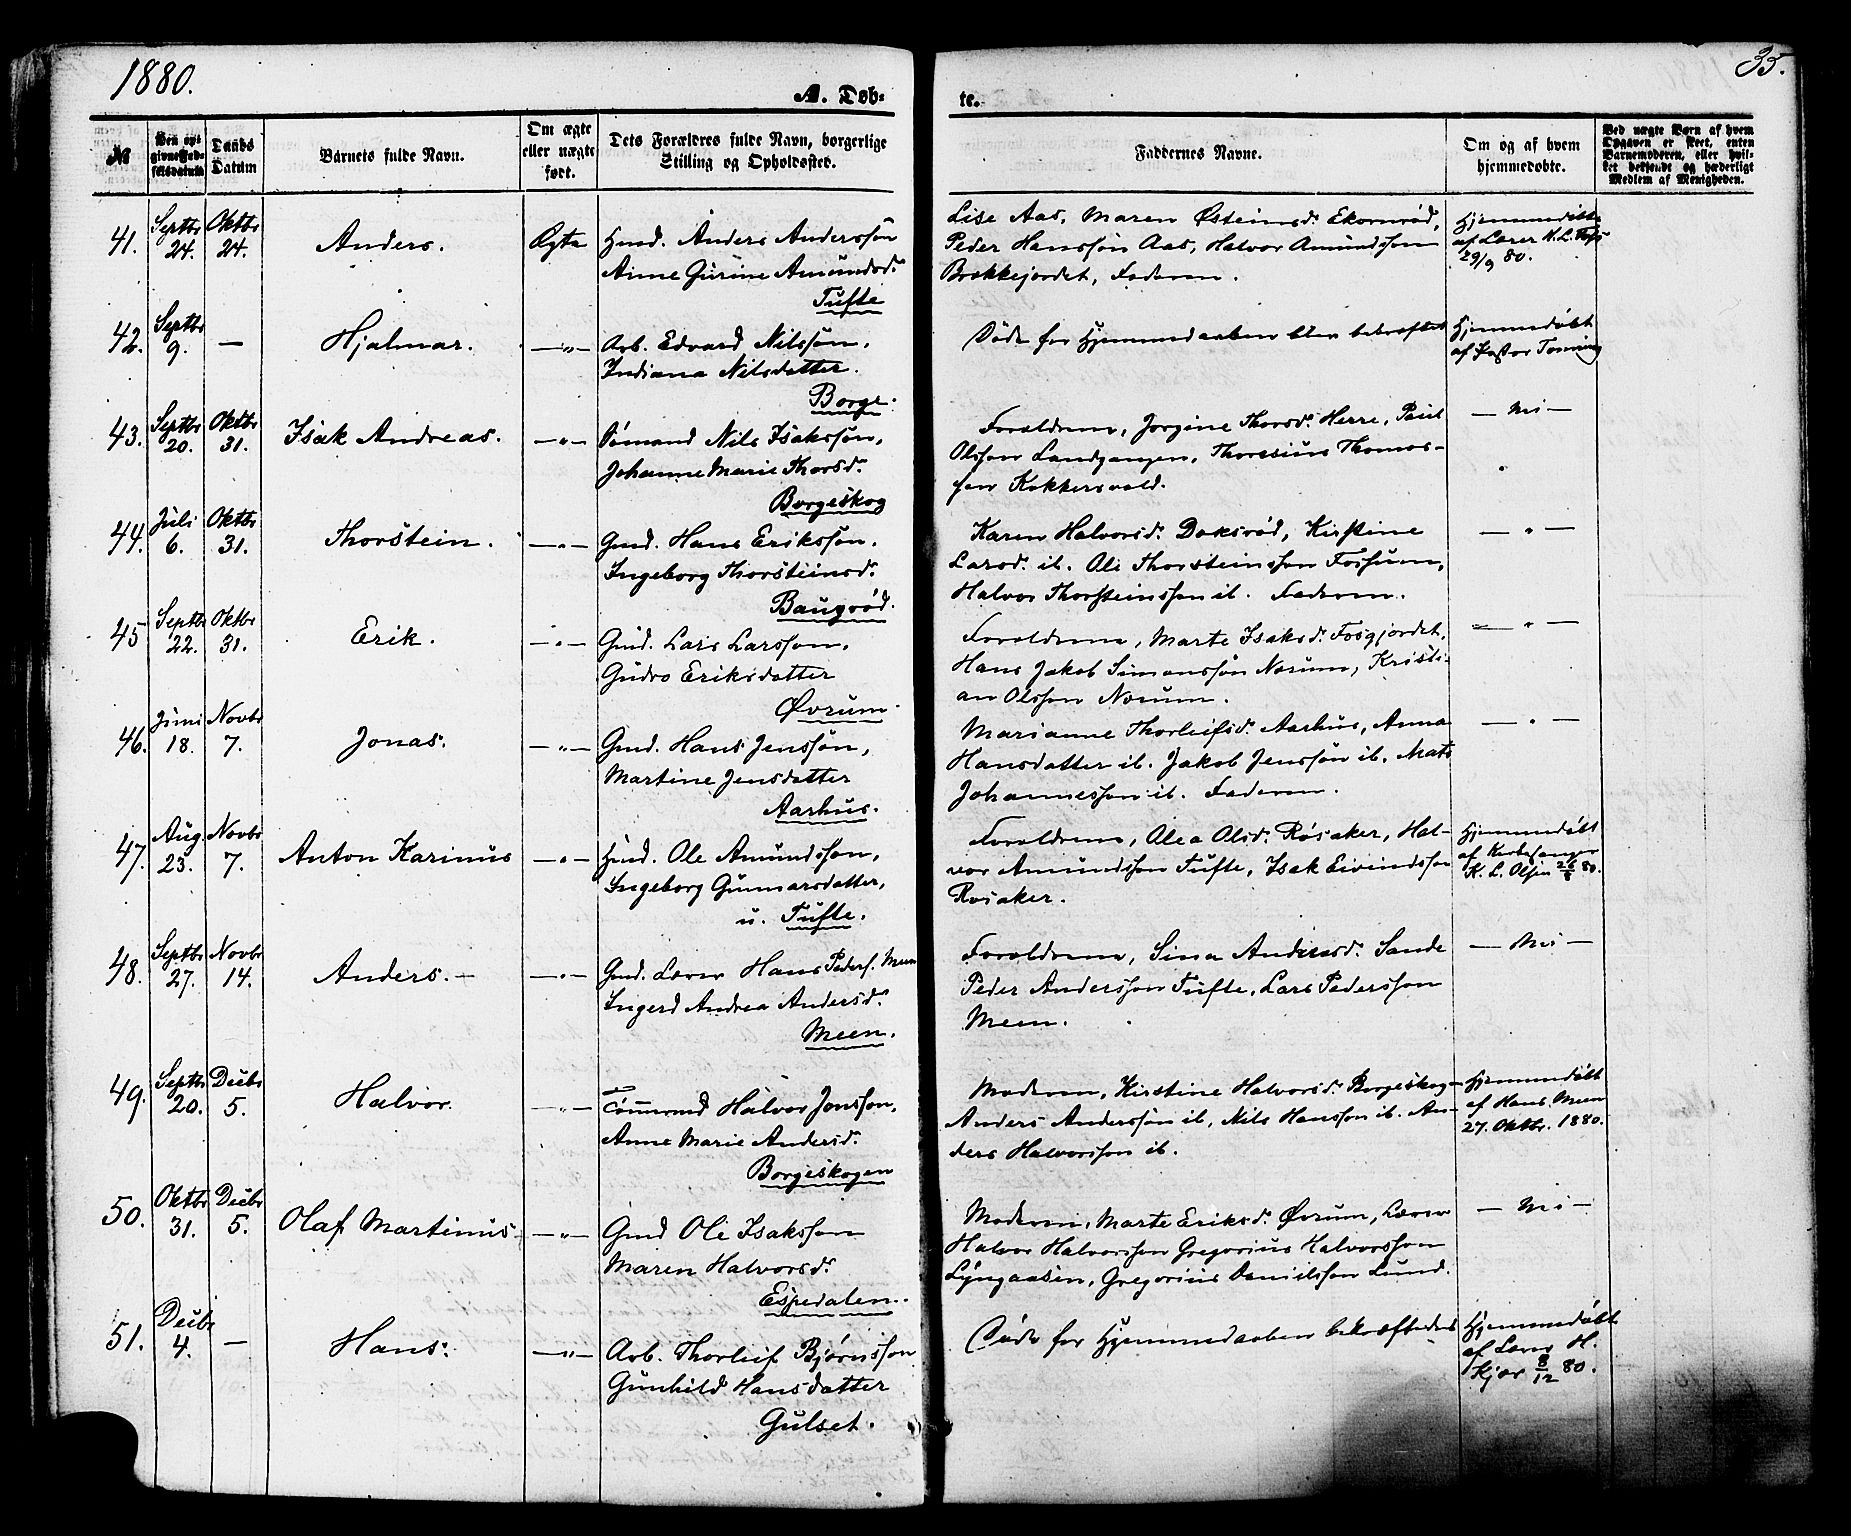 1880.
35.
A. Døb-
te.
№
Den opgivne Fødselsdatum
Daabs Datum
Barnets fulde Navn.
Om ægte eller uægte født.
Dets Forældres fulde Navn, borgerlige Stilling og Opholdssted.
Faddernes Navne.
Om og af hvem hjemmedøbte.
Ved uægte Børn af hvem Opgaven er skeet, enten Barnemoderen, eller hvilket bekjendt og hæderligt Medlem af Menigheden.
41. Septbr 24. Oktbr 24. Anders. Ægte
Gmd. Anders Anderssøn
Anne Gurine Amundsd.
Tufte
Lise Aas, Maren Østeinsd. Ekornrød,
Peder Hanssøn Aas, Halvor Amundssøn
Brækkejordet, Faderen.
Hjemmedøbt
af Lærer
29/9 80.
42. Septbr 9. — Hjalmar. —"—
Arb. Edvard Nilssøn.
Indiana Nilsdatter.
Borge.
Døde før Hjemmedaaben blev bekræftet
Hjemmedøbt
af Pastor Tonning
43. Septbr 20. Oktbr 31. Isak Andreas. —"—
Sømand Nils Isakssøn,
Johanne Marie Thorsd.
Borgeskog
Forældrene, Jorgine Thorsd. Herre, Paul
Olssøn Landgangen, Thoresius Thomas-
søn Kokkersvold.
— Nei —
44. Juli 6. Oktbr 31. Thorstein. —"—
Gmd. Hans Erikssøn.
Ingeborg Thorsteinsd.
Baugrød.
Karen Halvorsd. Doksrød, Kirstine
Larsd. ib. Ole Thorsteinssøn Fossum,
Halvor Thorsteinssøn ib. Faderen.
— " —
45 Septbr 22. Oktbr 31. Erik. —"—
Gmd. Lars Larssøn.
Gudro Eriksdatter
Øvrum.
Forældrene, Marte Isaksd. Fosgjordet,
Hans Jakob Simonssøn Nærum, Kristi-
an Olssøn Nærum.
— " —
46. Juni 18. Novbr 7. Jonas. —"—
Gmd. Hans Jenssøn,
Martine Jensdatter
Aarhus.
Marianne Thorleifsd. Aarhus, Anna
Hansdatter ib. Jakob Jenssøn ib. Mats
Johannessøn ib. Faderen.
— " —
47. Aug. 23. Novbr 7. Anton Karinus —"—
Hmd. Ole Amundssøn,
Ingeborg Gunnarsdatter,
u. Tufte.
Forældrene, Alea Olsd. Røsaker, Hal-
vor Amundssøn Tufte, Isak Eivindssøn
Røsaker.
Hjemmedøbt
af Kirkesanger
K. L. Olsen 26/8 80.
48. Septbr 27. Novbr 14. Anders.— —"—
Gmd. Lærer Hans Peders. Meen
Ingerd Andrea Andersd.
Meen.
Forældrene, Sina Andersd. Sande
Peder Anderssøn Tufte, Lars Pederssøn
Meen.
— Nei —
49. Septbr 20. Decbr 5. Halvor. —"—
Tømmermd Halvor Jonssøn,
Anne Marie Andersd.
Borgeskogen
Moderen, Kirstine Halvorsd. Borgeskog
Anders Anderssøn ib, Nils Hanssøn ib. An-
ders Halvorssøn ib.
Hjemmedøbt
af Hans Meen
27. Oktbr. 1880.
50. Oktbr 31. Decbr 5. Olaf Martinus —"—
Gmd Ole Isakssøn
Maren Halvorsd.
Espedalen.
Moderen, Marte Eriksd. Øvrum, Lærer
Halvor Halvorssøn Gregorius Halvorssøn
Lyngaasen, Gregorius Danielssøn Lund.
— Nei —
51. Decbr 4. — Hans. —"—
Arb. Thorleif Bjørnssøn
Gunhild Hansdatter
Gulset.
Døde før Hjemmedaaben bekræftedes
Hjemmedøbt
af Lærer H.
Kjær 8/12 80.